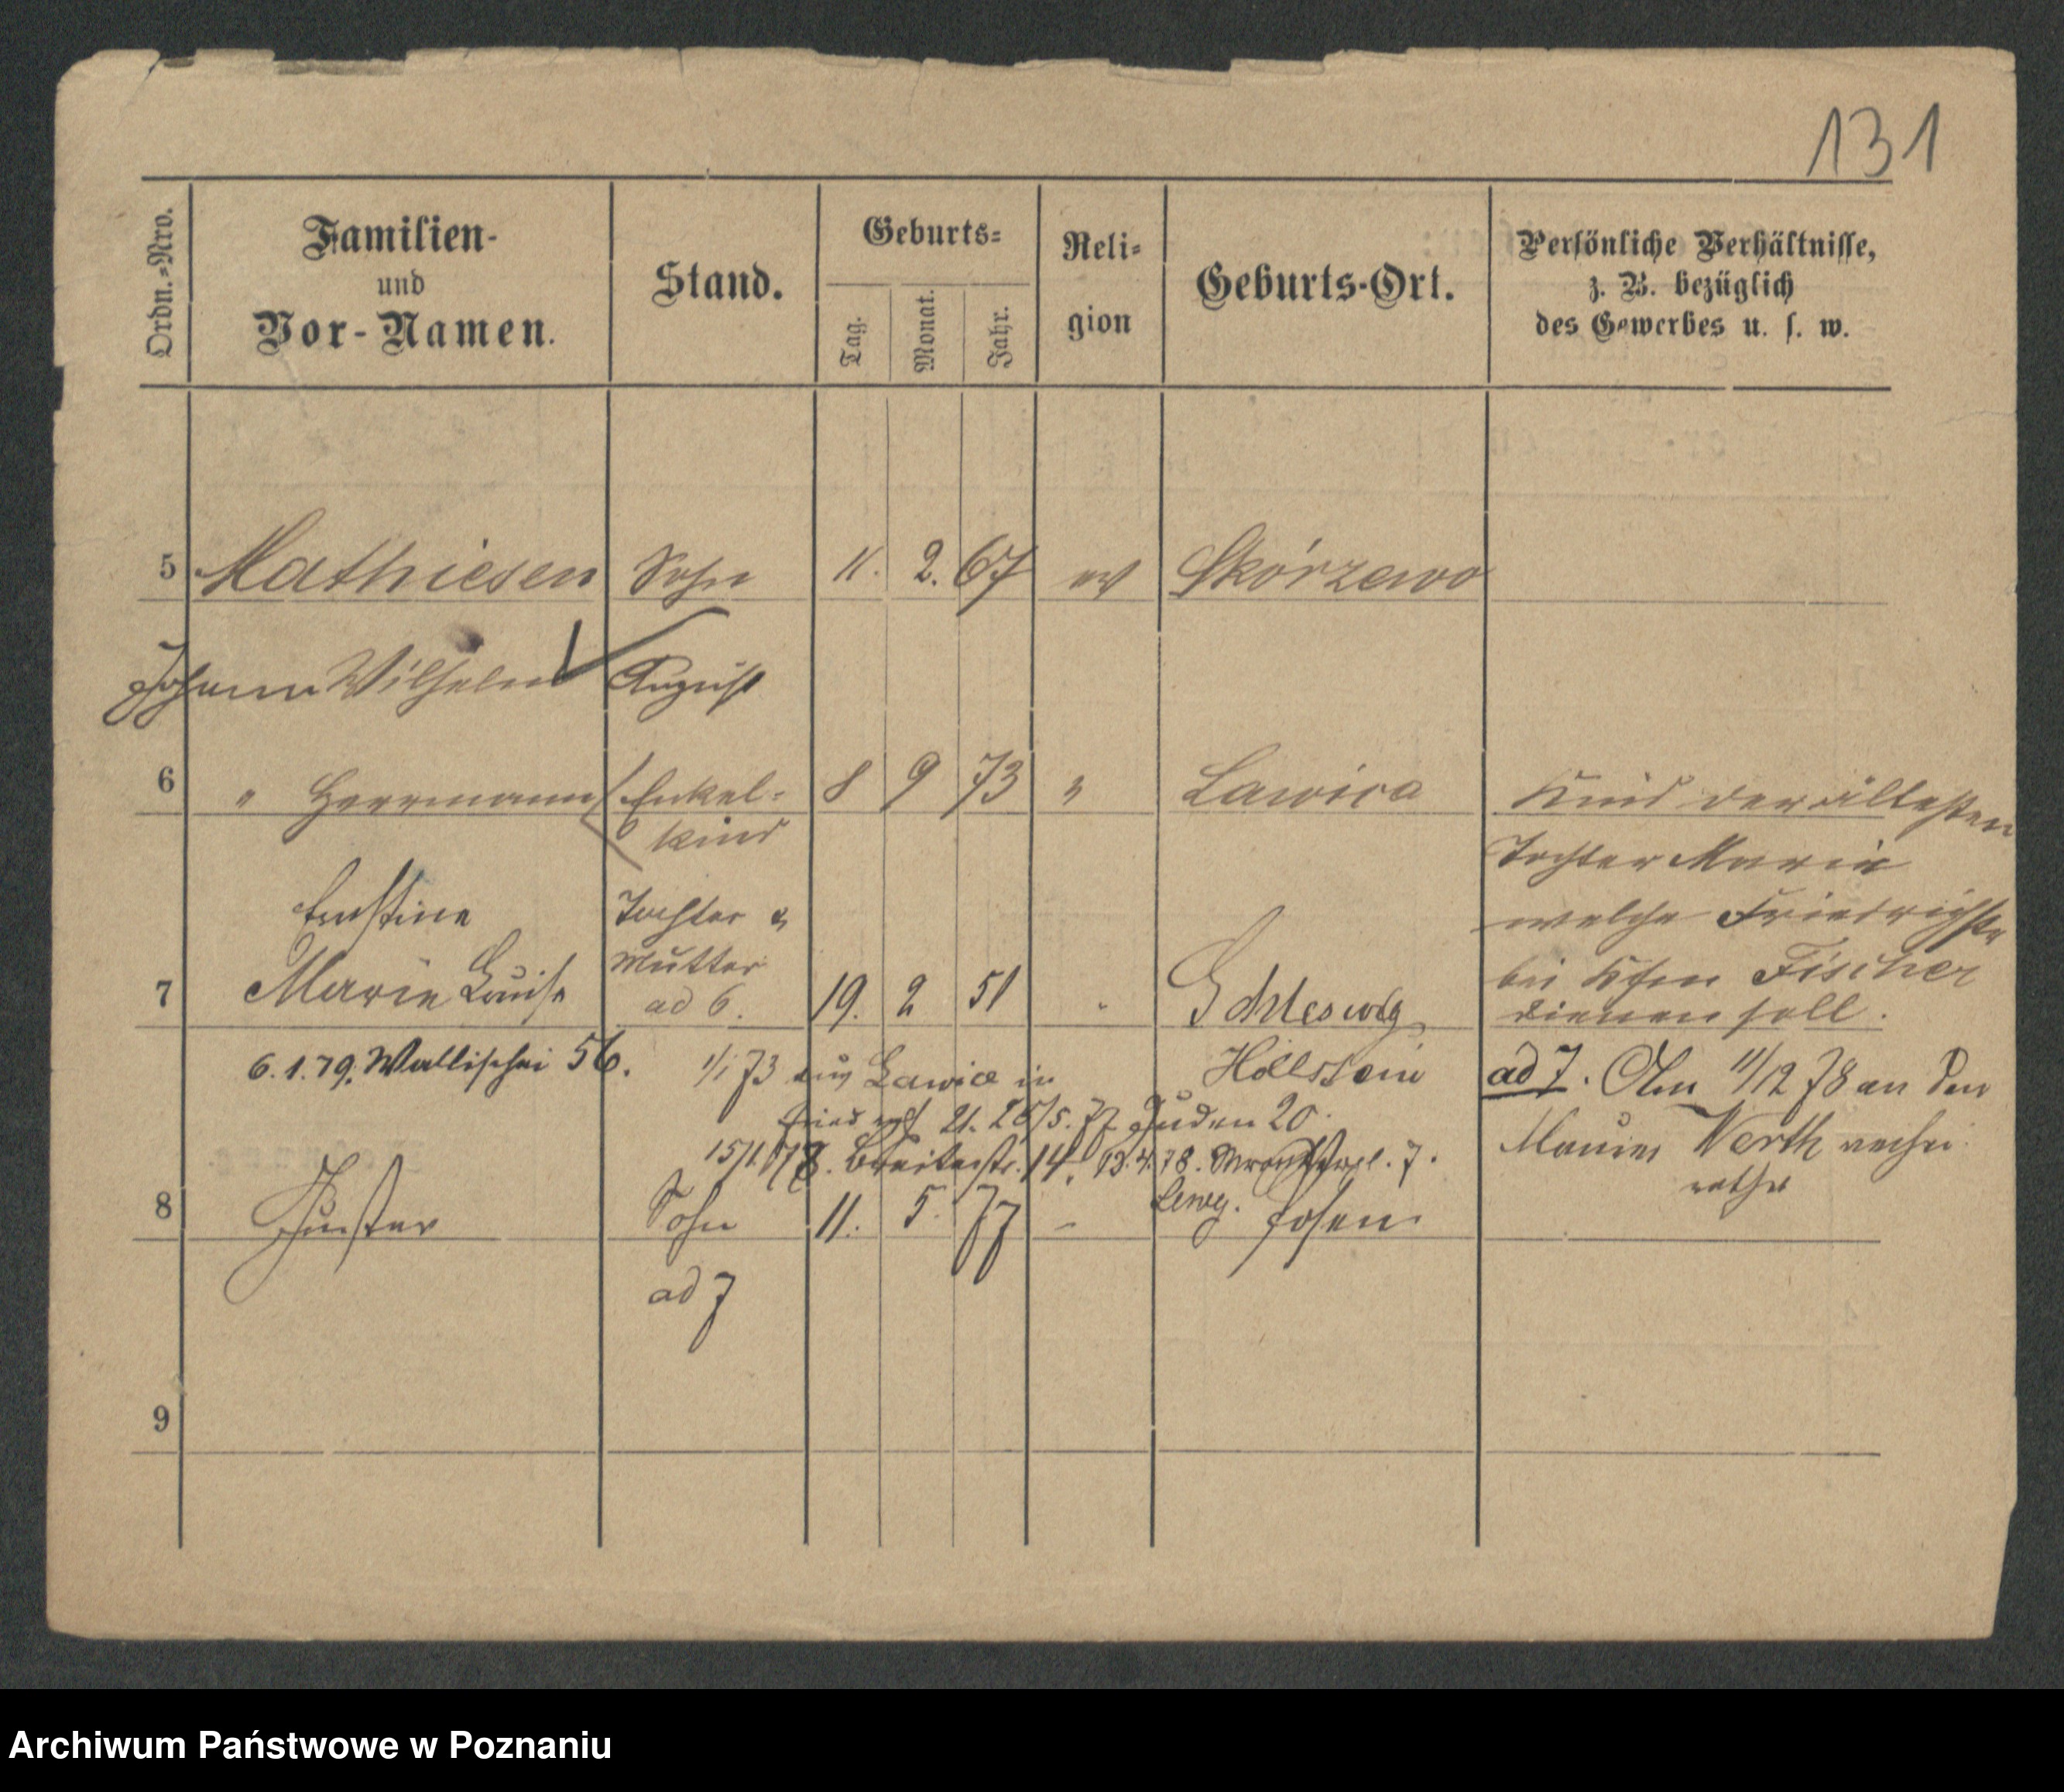 131
Ordn.=Nro.
Familien-
und
Vor-Namen.
Stand.
Geburts=
Tag.
Monat.
Jahr.
Reli=
gion
Geburts-Ort.
Persönliche Verhältnisse,
z. B. bezüglich
des Gewerbes u. s. w.
5 Mathiesen Sohn 11. 2. 67 ev Skórzewo
Johann Wilhelm August
6 " Herrmann Enkel= 8 9 73 " Lawica Kind der ältesten
kind
Tochter Marie
welche Friedrichstr
bei Kfm Fischer
dienen soll.
Ernstine Tochter &
Mutter
7 Marie Louise ad 6. 19. 2 51 " Schleswig
Hollstein
6.1.79. Wallischei 56. 1/1 73 aus Lawica in
21. 25/5. 77 Juden 20.
15/1. 78. Breitestr. 14. 13.4.78. 7.
ad 7. Am 11/12 78 an den
Maurer Werth verhei
rathet
8 Gustav Sohn 11. 5. 77 - Posen
ad 7
9
Archiwum Państwowe w Poznaniu